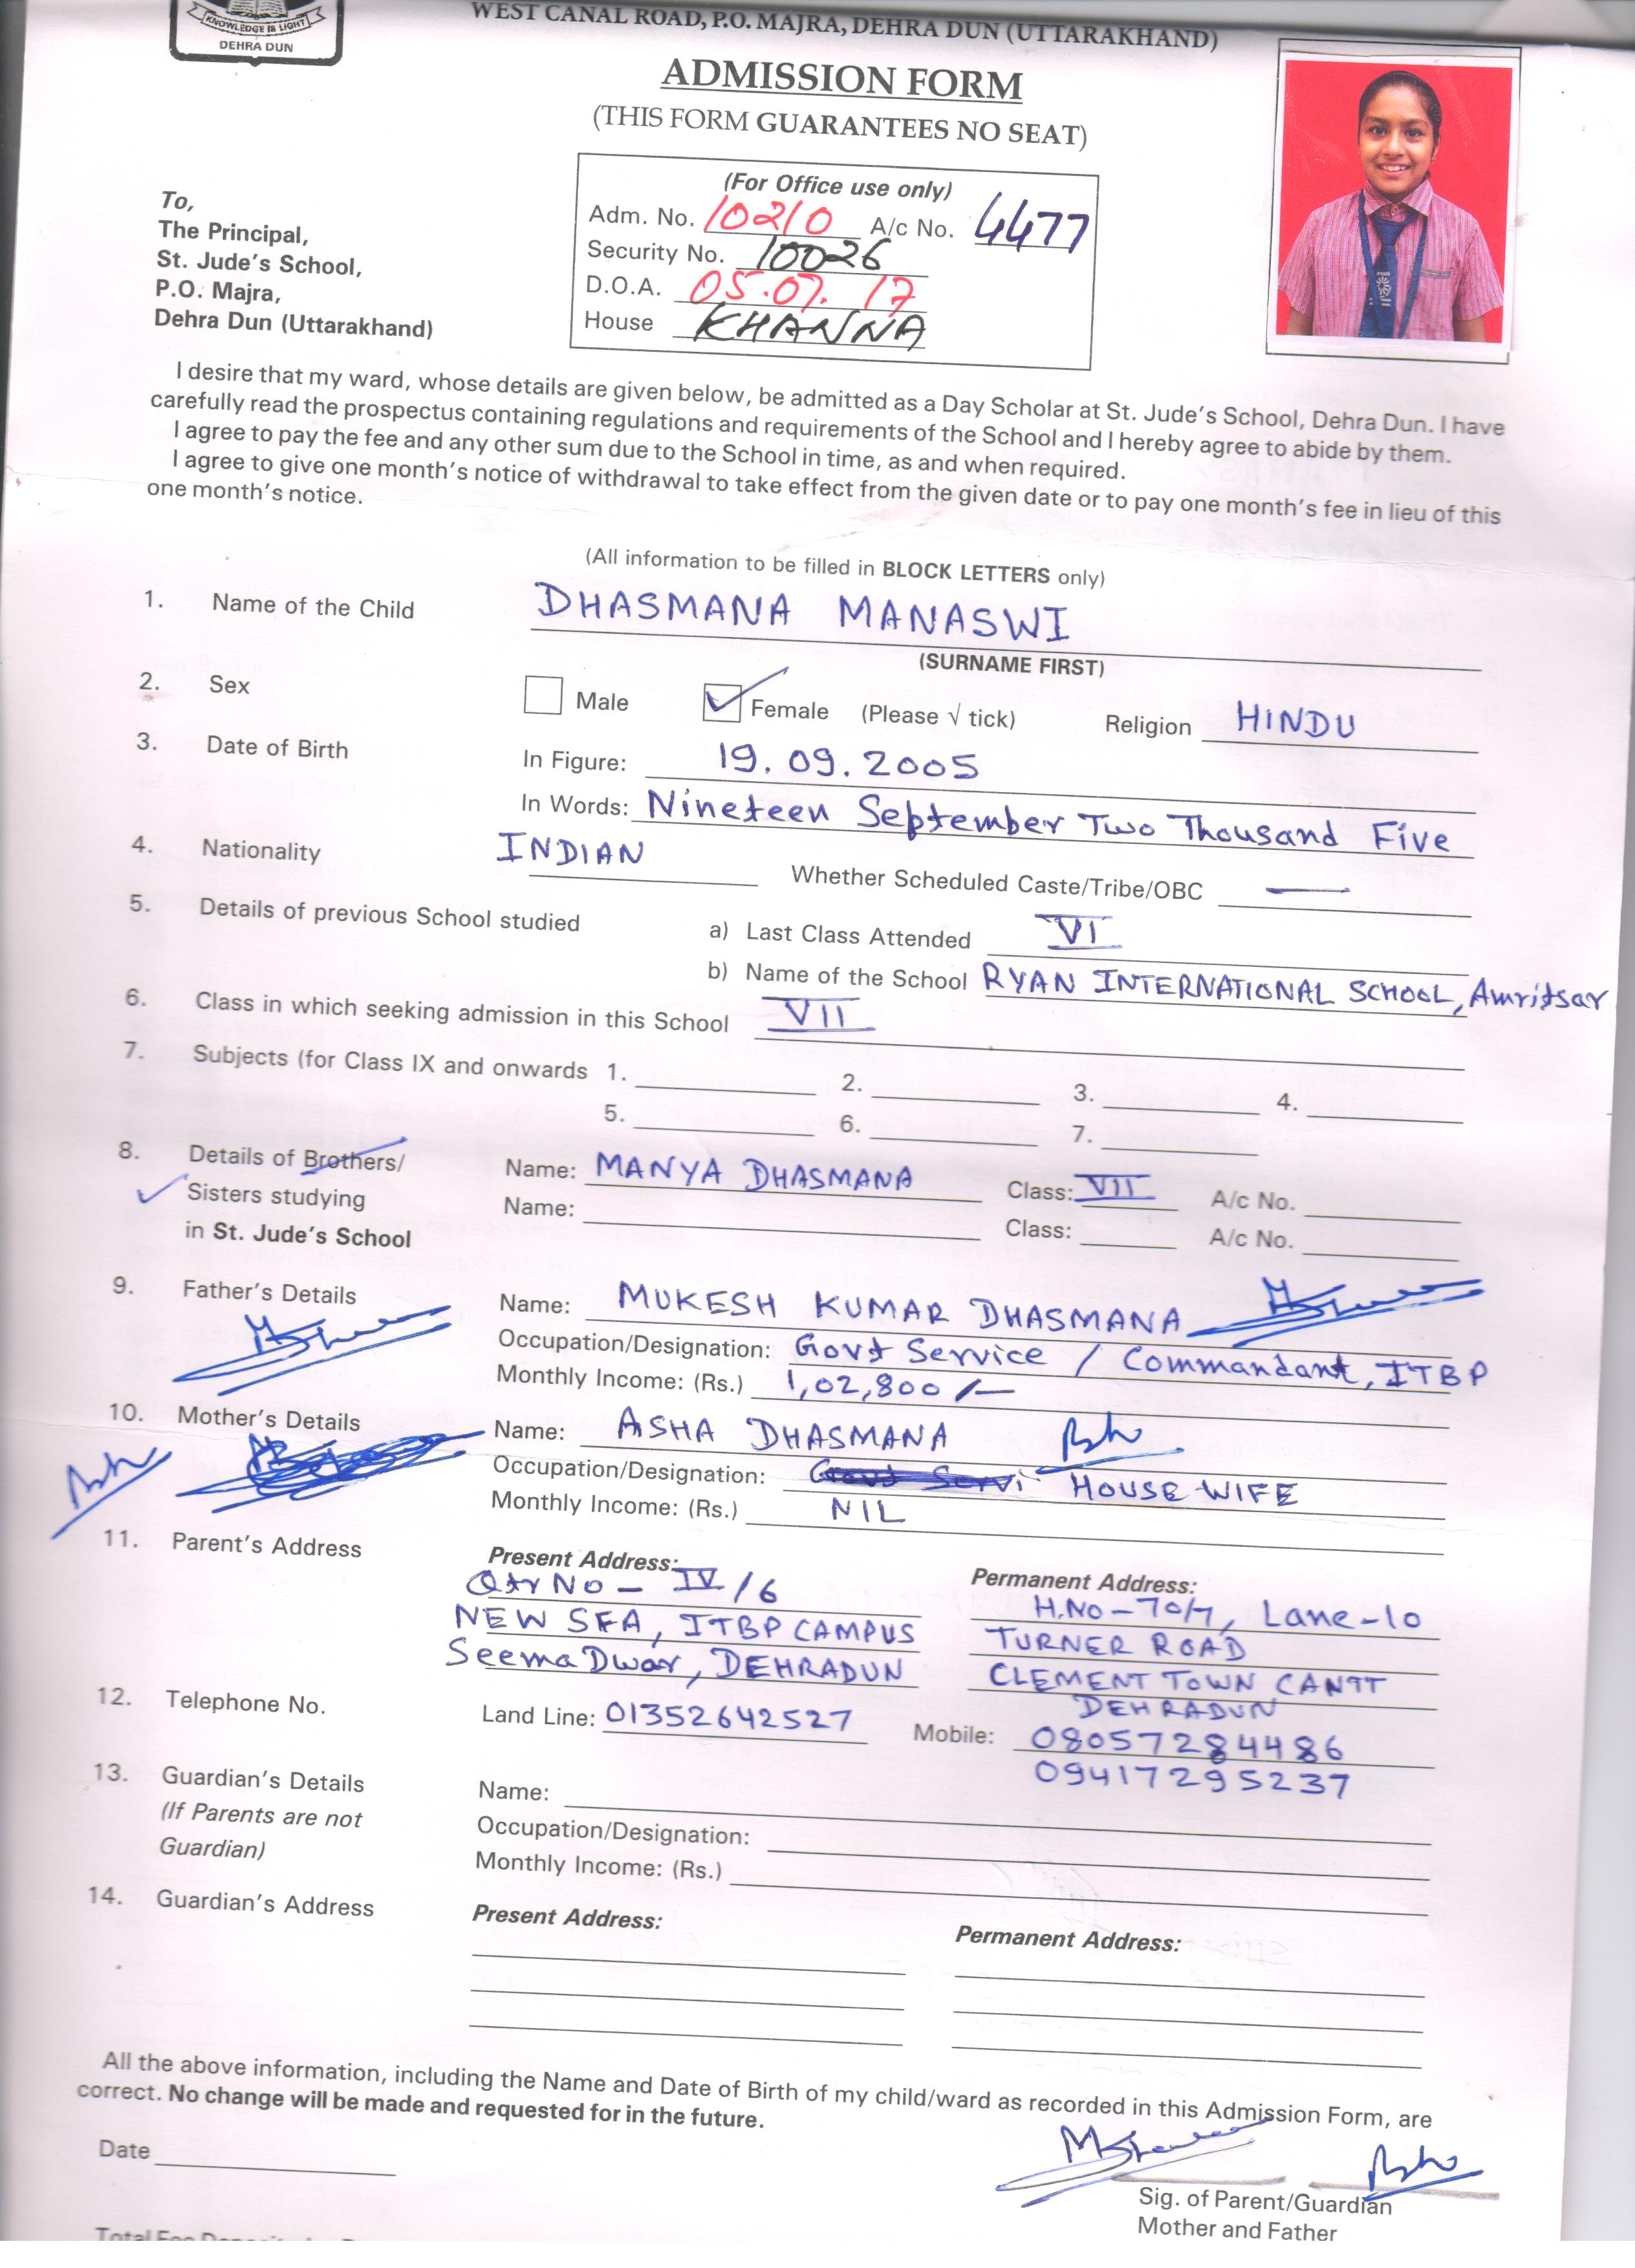 KNOWLEDGE IS LIGHT
DEHRA DUN
WEST CANAL ROAD, P.O. MAJRA, DEHRA DUN (UTTARAKHAND)
ADMISSION FORM
(THIS FORM GUARANTEES NO SEAT)
To,
The Principal,
St. Jude's School,
P.O. Majra,
Dehra Dun (Uttarakhand)
(For Office use only)
Adm. No. 10210 A/c No. 4477
Security No. 10026
D.O.A. 05.07.17
House KHANNA
I desire that my ward, whose details are given below, be admitted as a Day Scholar at St. Jude's School, Dehra Dun. I have
carefully read the prospectus containing regulations and requirements of the School and I hereby agree to abide by them.
I agree to pay the fee and any other sum due to the School in time, as and when required.
I agree to give one month's notice of withdrawal to take effect from the given date or to pay one month's fee in lieu of this
one month's notice.
(All information to be filled in BLOCK LETTERS only)
1. Name of the Child DHASMANA MANASWI
(SURNAME FIRST)
2. Sex Male Female (Please √ tick) Religion HINDU
3. Date of Birth In Figure: 19.09.2005
In Words: Nineteen September Two Thousand Five
4. Nationality INDIAN Whether Scheduled Caste/Tribe/OBC —
5. Details of previous School studied a) Last Class Attended VI
b) Name of the School RYAN INTERNATIONAL SCHOOL, Amritsar
6. Class in which seeking admission in this School VII
7. Subjects (for Class IX and onwards 1. 2. 3. 4.
5. 6. 7.
8. Details of Brothers/ Name: MANYA DHASMANA Class: VII A/c No.
Sisters studying Name: Class: A/c No.
in St. Jude's School
9. Father's Details Name: MUKESH KUMAR DHASMANA
Occupation/Designation: Govt Service / Commandant, ITBP
Monthly Income: (Rs.) 1,02,800/-
10. Mother's Details Name: ASHA DHASMANA
Occupation/Designation: HOUSE WIFE
Monthly Income: (Rs.) NIL
11. Parent's Address Present Address: Permanent Address:
Qtr No - IV/6 H.No-70/7, Lane-10
NEW SFA, ITBP CAMPUS TURNER ROAD
Seema Dwar, DEHRADUN CLEMENT TOWN CANTT
DEHRADUN
12. Telephone No. Land Line: 01352642527 Mobile: 08057284486
09417295237
13. Guardian's Details Name:
(If Parents are not Occupation/Designation:
Guardian) Monthly Income: (Rs.)
14. Guardian's Address Present Address: Permanent Address:
All the above information, including the Name and Date of Birth of my child/ward as recorded in this Admission Form, are
correct. No change will be made and requested for in the future.
Date
Sig. of Parent/Guardian
Mother and Father